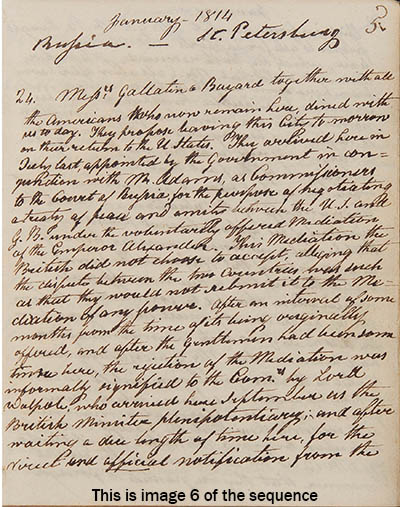 January - 1814
5
Russia. — St. Petersburg
24. Messrs Gallatin & Bayard together with all
the Americans who now remain here, dined with
us to day. They propose leaving this City to morrow
on their return to the U States. They arrived here in
July last, appointed by the Government in con-
junction with Mr. Adams, as Commissioners
to the Court of Russia, for the purpose of negotiating
a treaty of peace and amity between the U. S. and
G. B. under the voluntarily offered Mediation
of the Emperor Alexander. This Mediation the
British did not choose to accept, alleging that
the dispute between the two Countries was such
as that they would not submit it to the Me-
diation of any power. After an interval of some
months from the time of its being originally
offered, and after the gentlemen had been some
time here, the rejection of the Mediation was
informally signified to the Comrs by Lord
Walpole, who arrived here September as the
British Minister plenipotentiary; and after
waiting a due length of time here, for the
direct and official notification from the
This is image 6 of the sequence